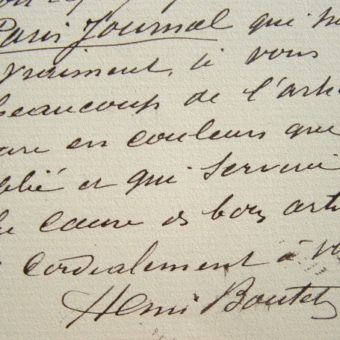 Paris Journal qui
vraiment, je vous
beaucoup de l'arti
en couleurs que
blié et qui servira
cause et bons arti
cordialement à v
Henri Boutet